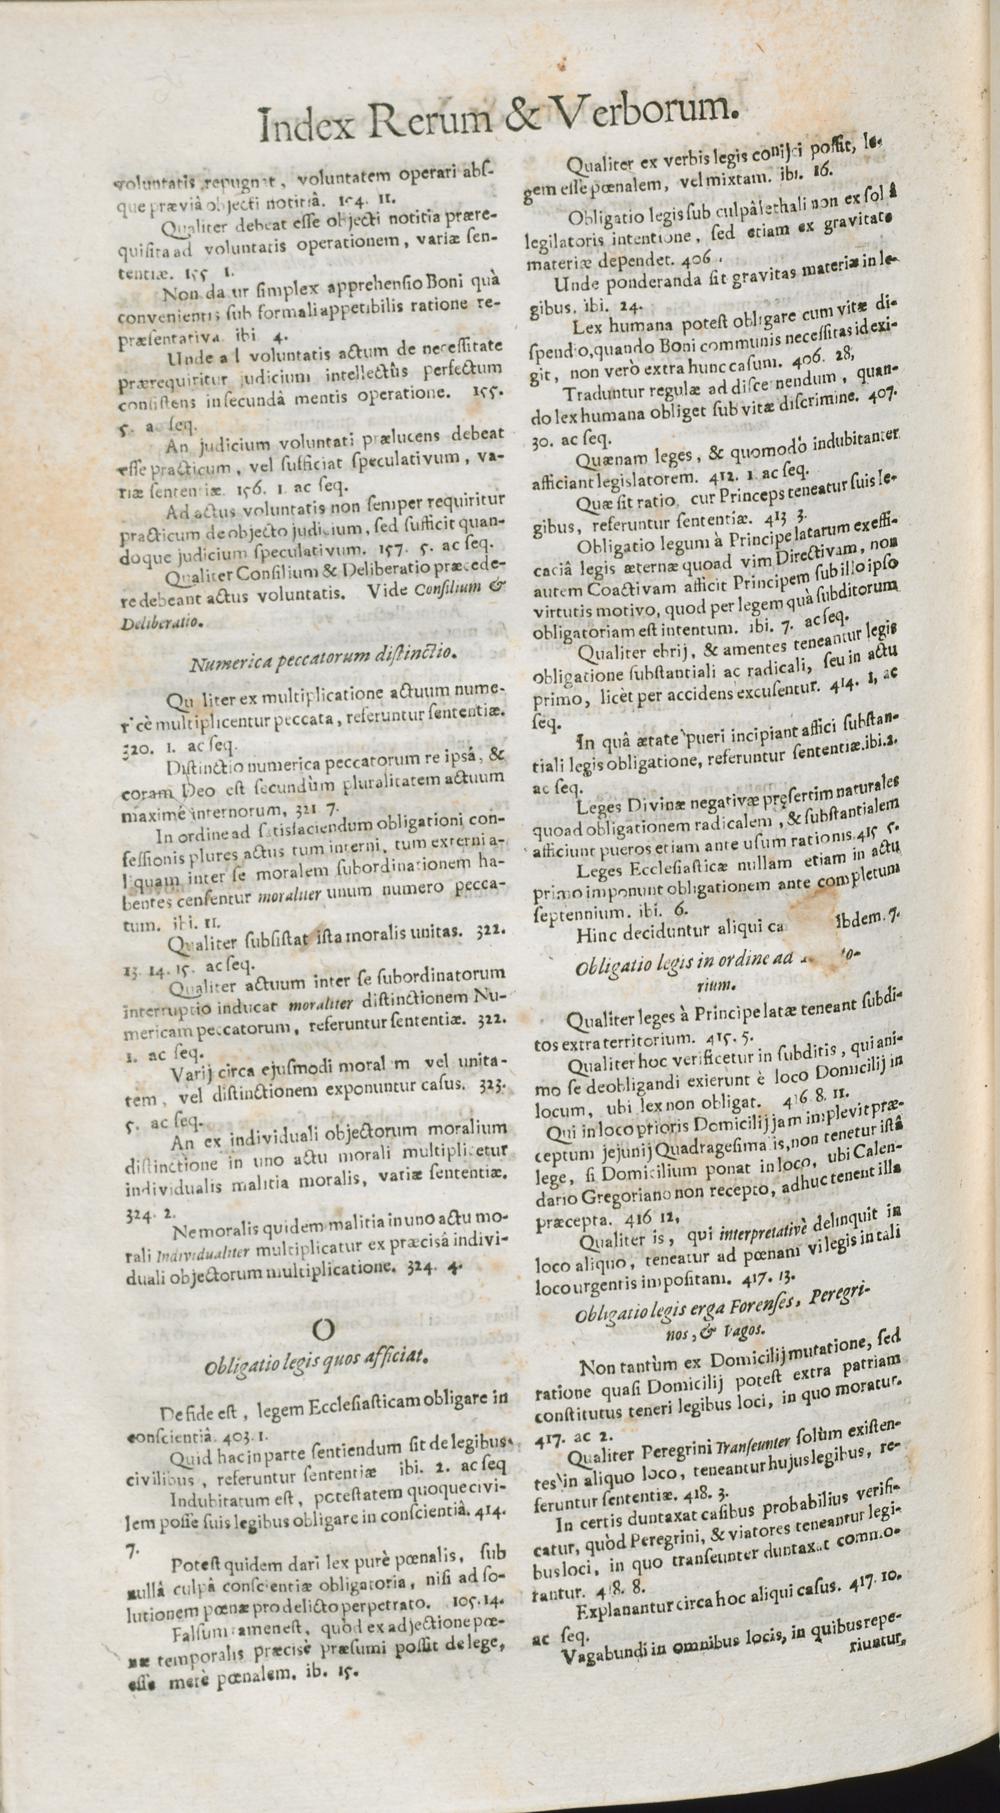 Index Rerum & Verborum.
voluntatis repugnat, voluntatem operari abs-
que præviâ objecti notitiâ. 154. 11.
Qualiter debeat esse objecti notitia prære-
quisita ad voluntatis operationem, variæ sen-
tentiæ. 155 1.
Non datur simplex apprehensio Boni quà
convenientis sub formali appetibilis ratione re-
præsentativa ibi 4.
Unde ad voluntatis actum de necessitate
prærequiritur judicium intellectûs perfectum
consistens in secundâ mentis operatione. 155.
5. ac seq.
An judicium voluntati prælucens debeat
esse practicum, vel sufficiat speculativum, va-
riæ sententiæ. 156. 1 ac seq.
Ad actus voluntatis non semper requiritur
practicum de objecto judicium, sed sufficit quan-
doque judicium speculativum. 157. 5. ac seq.
Qualiter Consilium & Deliberatio præcede-
re debeant actus voluntatis. Vide Consilium &
Deliberatio.
Numerica peccatorum distinctio.
Qualiter ex multiplicatione actuum nume-
ricè multiplicentur peccata, referuntur sententiæ.
320. 1. ac seq.
Distinctio numerica peccatorum re ipsâ, &
coram Deo est secundùm pluralitatem actuum
maximè internorum, 321 7.
In ordine ad satisfaciendum obligationi con-
fessionis plures actus tum interni, tum externi a-
liquam inter se moralem subordinationem ha-
bentes censentur moraliter unum numero pecca-
tum. ibi. 11.
Qualiter subsistat ista moralis unitas. 322.
13. 14. 15. ac seq.
Qualiter actuum inter se subordinatorum
interruptio inducat moraliter distinctionem Nu-
mericam peccatorum, referuntur sententiæ. 322.
1. ac seq.
Varij circa ejusmodi moralem vel unita-
tem, vel distinctionem exponuntur casus. 323.
5. ac seq.
An ex individuali objectorum moralium
distinctione in uno actu morali multiplicetur
individualis malitia moralis, variæ sententiæ.
324. 2.
Ne moralis quidem malitia in uno actu mo-
rali Individualiter multiplicatur ex præcisâ indivi-
duali objectorum multiplicatione. 324. 4.
O
Obligatio legis quos afficiat.
De fide est, legem Ecclesiasticam obligare in
conscientiâ. 403. 1.
Quid hac in parte sentiendum sit de legibus
civilibus, referuntur sententiæ ibi. 2. ac seq
Indubitatum est, potestatem quoque civi-
lem posse suis legibus obligare in conscientiâ. 414.
7.
Potest quidem dari lex purè pœnalis, sub
nullâ culpâ conscientiæ obligatoria, nisi ad so-
lutionem pœnæ pro delicto perpetrato. 105. 14.
Falsum tamen est, quòd ex adjectione pœ-
næ temporalis præcisè præsumi possit de lege,
esse merè pœnalem. ib. 15.
Qualiter ex verbis legis conijci possit, le-
gem esse pœnalem, vel mixtam. ibi. 16.
Obligatio legis sub culpâ lethali non ex solâ
legilatoris intentione, sed etiam ex gravitate
materiæ dependet. 406.
Unde ponderanda sit gravitas materiæ in le-
gibus. ibi. 24.
Lex humana potest obligare cum vitæ di-
spendio, quando Boni communis necessitas id exi-
git, non verò extra hunc casum. 406. 28,
Traduntur regulæ ad discernendum, quan-
do lex humana obliget sub vitæ discrimine. 407.
30. ac seq.
Quænam leges, & quomodo indubitanter
afficiant legislatorem. 412. 1 ac seq.
Quæ sit ratio, cur Princeps teneatur suis le-
gibus, referuntur sententiæ. 413 3.
Obligatio legum à Principe latarum ex effi-
caciâ legis æternæ quoad vim Directivam, non
autem Coactivam afficit Principem sub illo ipso
virtutis motivo, quod per legem quà subditorum
obligatoriam est intentum. ibi. 7. ac seq.
Qualiter ebrij, & amentes teneantur legis
obligatione substantiali ac radicali, seu in actu
primo, licèt per accidens excusentur. 414. 1, ac
seq.
In quâ ætate pueri incipiant affici substan-
tiali legis obligatione, referuntur sententiæ. ibi. 2.
ac seq.
Leges Divinæ negativæ præsertim naturales
quoad obligationem radicalem, & substantialem
afficiunt pueros etiam ante usum rationis. 415 5.
Leges Ecclesiasticæ nullam etiam in actu
primo imponunt obligationem ante completum
septennium. ibi. 6.
Hinc deciduntur aliqui ca Ibdem. 7.
Obligatio legis in ordine ad to-
rium.
Qualiter leges à Principe latæ teneant subdi-
tos extra territorium. 415. 5.
Qualiter hoc verificetur in subditis, qui ani-
mo se deobligandi exierunt è loco Domicilij in
locum, ubi lex non obligat. 416 8. 11.
Qui in loco prioris Domicilij jam implevit præ-
ceptum jejunij Quadragesimalis, non tenetur istâ
lege, si Domicilium ponat in loco, ubi Calen-
dario Gregoriano non recepto, adhuc tenent illa
præcepta. 416 12,
Qualiter is, qui interpretativè delinquit in
loco aliquo, teneatur ad pœnam vi legis in tali
loco urgentis impositam. 417. 13.
Obligatio legis erga Forenses, Peregri-
nos, & Vagos.
Non tantùm ex Domicilij mutatione, sed
ratione quasi Domicilij potest extra patriam
constitutus teneri legibus loci, in quo moratur.
417. ac 2.
Qualiter Peregrini Transeunter solùm existen-
tes in aliquo loco, teneantur hujus legibus, re-
feruntur sententiæ. 418. 3.
In certis duntaxat casibus probabilius verifi-
catur, quòd Peregrini, & viatores teneantur legi-
bus loci, in quo transeunter duntaxat commo-
rantur. 418. 8.
Explanantur circa hoc aliqui casus. 417. 10.
ac seq.
Vagabundi in omnibus locis, in quibus repe-
riuntur,